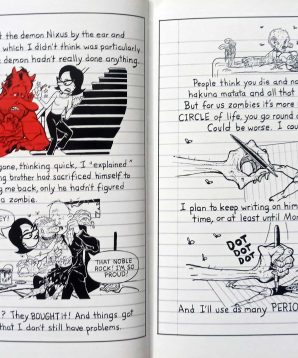 t the demon Nixus by the ear and
which I didn't think was particularly
e demon hadn't really done anything.
gone, thinking quick, I "explained"
ng brother had sacrificed himself to
g me back, only he hadn't figured
a zombie.
EY!
THAT NOBLE
ROCK! I'M SO
PROUD!
? They BOUGHT it! And things got
that I don't still have problems.
People think you die and no
hakuna matata and all that
But for us zombies it's more
CIRCLE of life, you go round a
Could be worse. I cou
I plan to keep writing on him
time, or at least until Mo
DOT
DOT
DOT
And I'll use as many PERIO